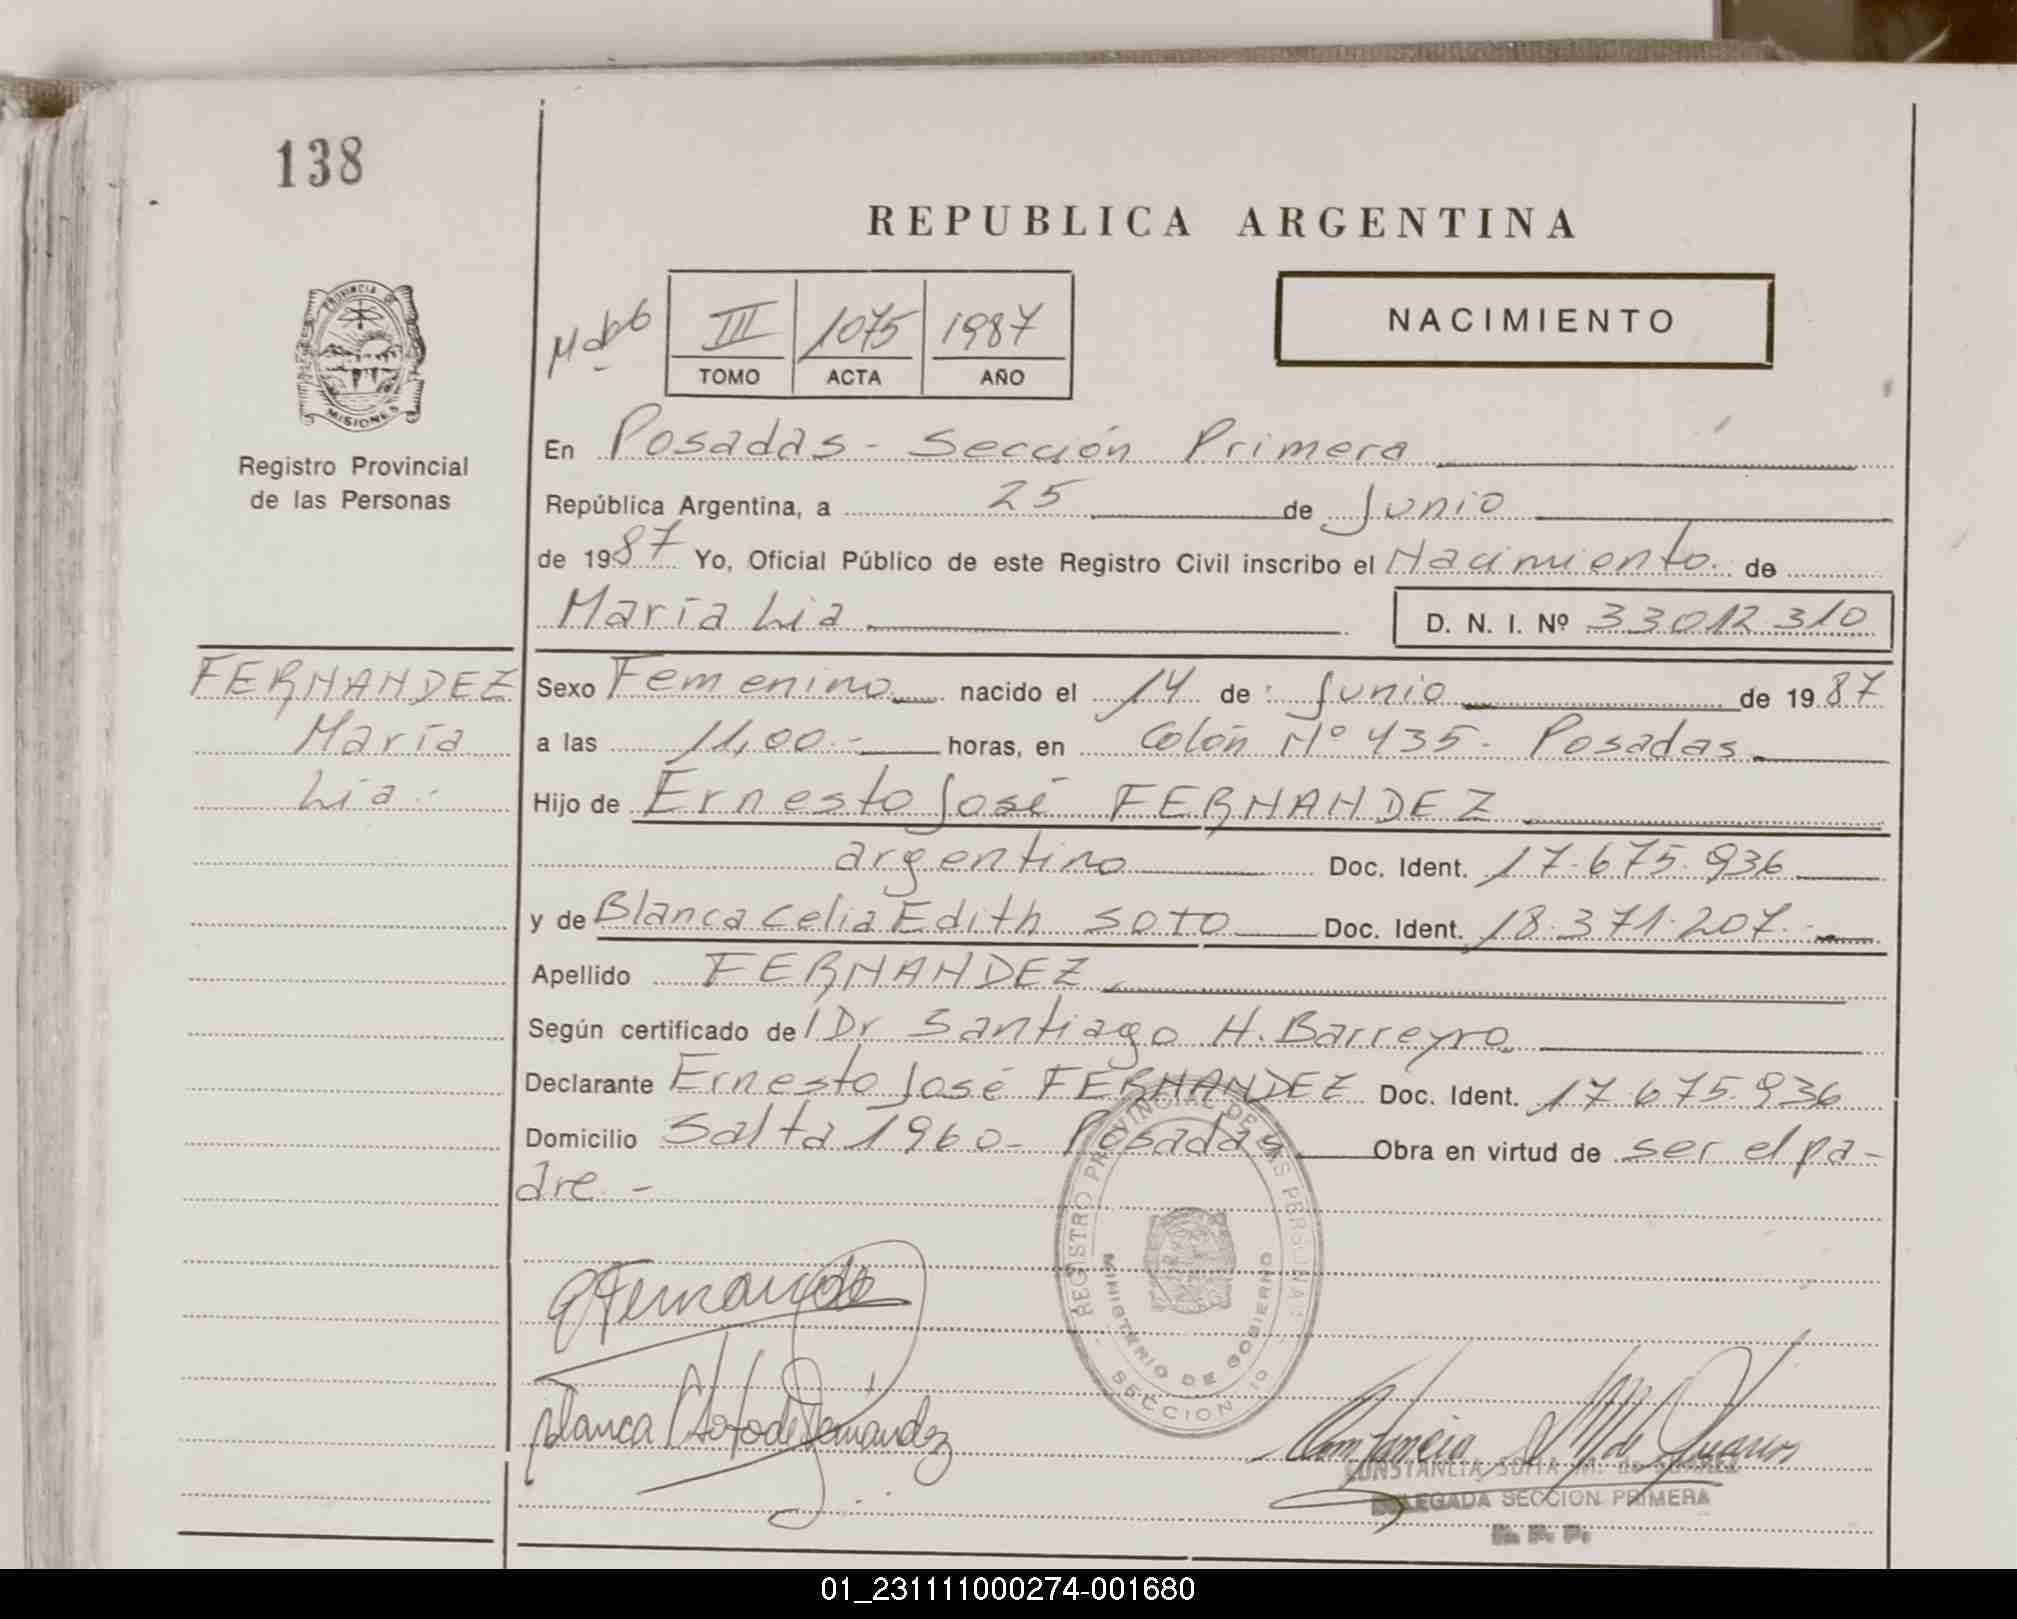 138
REPUBLICA ARGENTINA
III 1075 1987
TOMO ACTA AÑO
NACIMIENTO
PROVINCIA DE
MISIONES
Registro Provincial
de las Personas
En Posadas - Sección Primera
República Argentina, a 25 de Junio
de 1987 Yo, Oficial Público de este Registro Civil inscribo el Nacimiento de
María Lia D. N. I. Nº 33012310
FERNANDEZ
María
Lia.-
Sexo Femenino nacido el 14 de Junio de 1987
a las 11,00.- horas, en Colón Nº 435- Posadas
Hijo de Ernesto José FERNANDEZ
argentino Doc. Ident. 17.675.936
y de Blanca Celia Edith SOTO Doc. Ident. 18.371.207.-
Apellido FERNANDEZ
Según certificado del Dr Santiago H. Barreyro
Declarante Ernesto José FERNANDEZ Doc. Ident. 17.675.936
Domicilio Salta 1960- Posadas Obra en virtud de ser el pa-
dre -
REGISTRO PROVINCIAL DE LAS PERSONAS
MINISTERIO DE GOBIERNO
SECCION 1º
Blanca Soto de Fernández
CONSTANCIA M. de
DELEGADA SECCION PRIMERA
R. P. P.
01_231111000274-001680